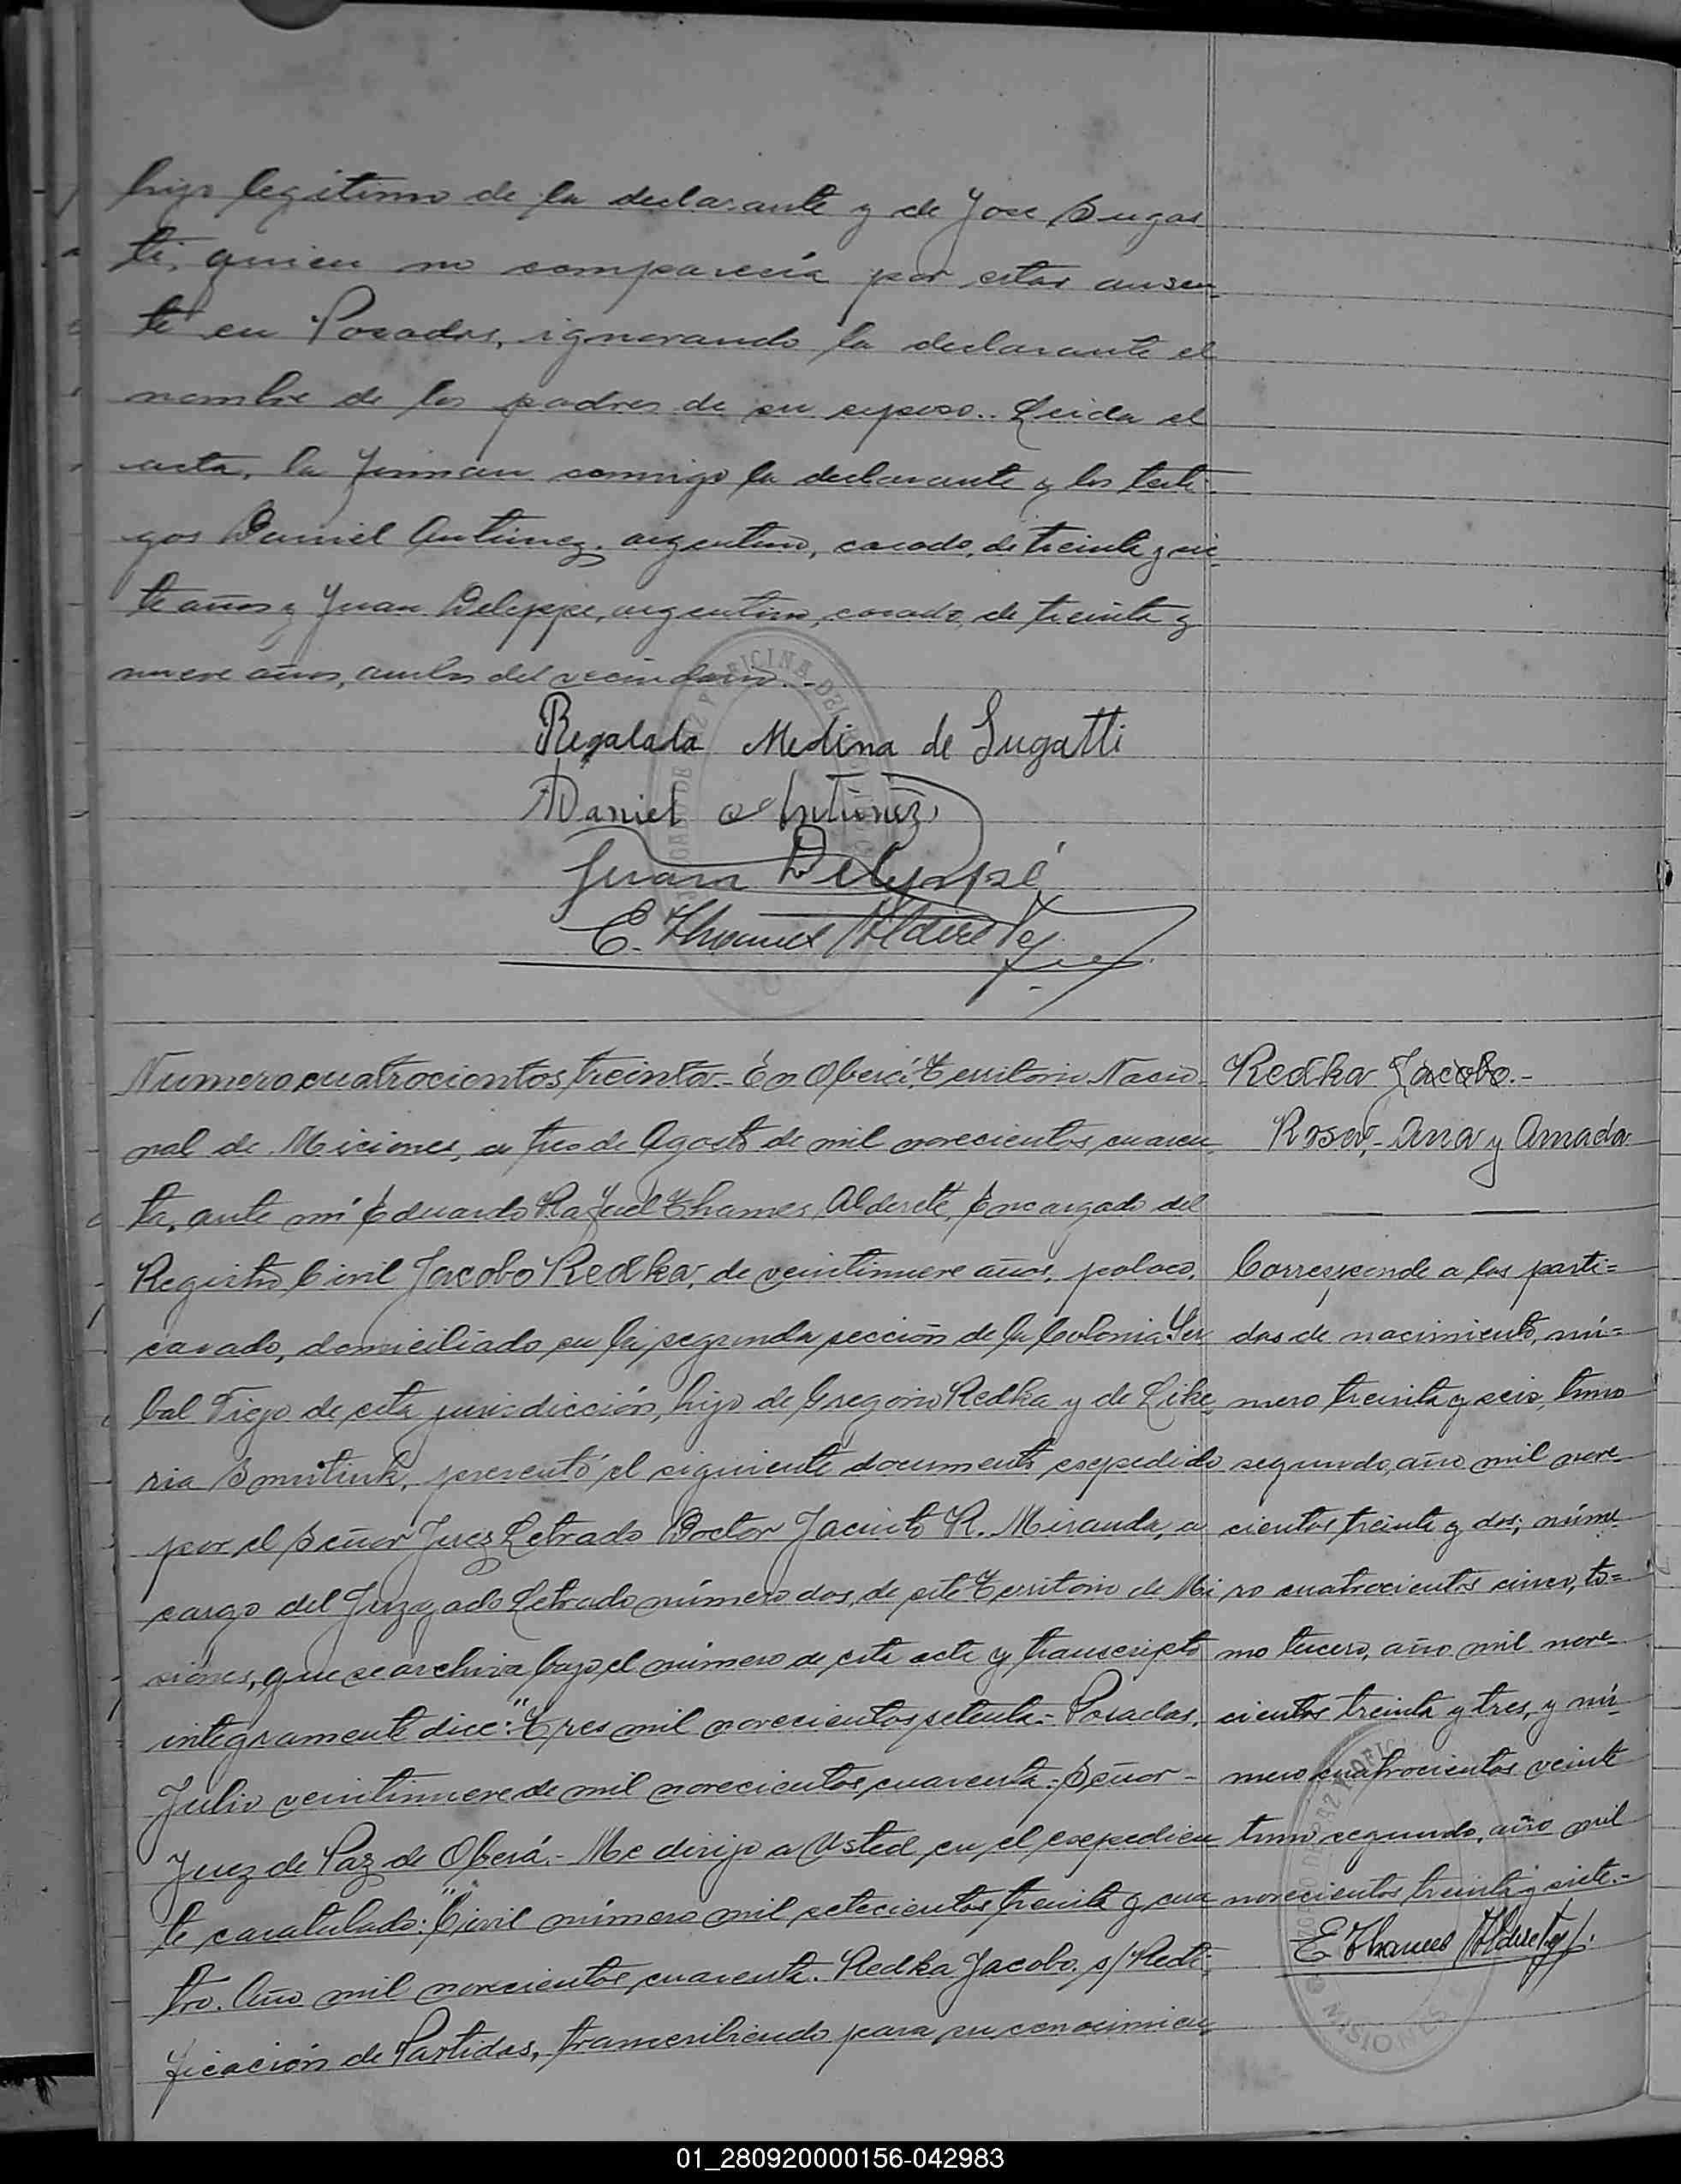 hijo legítimo de la declarante y de Jose Sugas
ti, quien no comparecía por estar ausen-
te en Posadas, ignorando la declarante el
nombre de los padres de su esposo.. Leida el
acta, la firman conmigo la declarante y los testi-
gos Daniel Antunez, argentino, casado, de treinta y sie-
te años y Juan Deleppe, argentino, casado, de treinta y
nueve años, ambos del vecindario.-
Regalada Medina de Sugatti
Daniel Antúnez
Juan
E. Thames Alderete
Numero cuatrocientos treinta.- En Oberá, Territorio Nacio-
nal de Miciones, a tres de Agosto de mil novecientos cuaren-
ta, ante mi Eduardo Rafael Thames Alderete, Encargado del
Registro Civil Jacobo Redka, de veintinueve años, polaco,
casado, domiciliado en la segunda sección de la Colonia Yer
bal Viejo de esta jurisdicción, hijo de Gregorio Redka y de Like-
ria presentó el siguiente documento expedido
por el Señor Juez Letrado Doctor Jacinto R. Miranda, a
cargo del Juzgado Letrado número dos, de este Territorio de Mi
siones, que se archiva bajo el número de esta acta y transcripto
integramente dice: "Tres mil novecientos setenta.- Posadas,
Julio veintinueve de mil novecientos cuarenta.- Señor-
Juez de Paz de Oberá.- Me dirijo a Usted en el expedien
te caratulado: "Civil número mil setecientos treinta y cua
tro. Año mil novecientos cuarenta. Redka Jacobo s/ Recti-
ficación de Partidas, transcribiendo para su conocimien-
Redka Jacobo.-
Rosa,- Ana y Amada
Corresponde a las parti=
das de nacimiento, nú=
mero treinta y seis, tomo
segundo, año mil nove-
cientos treinta y dos; núme-
ro cuatrocientos cinco, to=
mo tercero, año mil nove-
cientos treinta y tres, y nú-
mero cuatrocientos veinte
tomo segundo, año mil
novecientos treinta y siete.-
E Thames Alderete
MISIONES
01_280920000156-042983